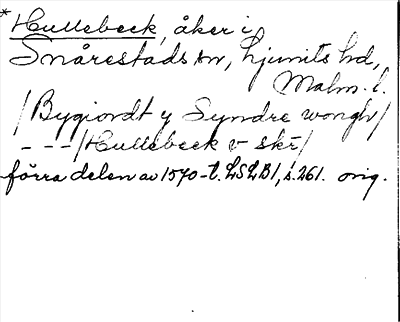 * Hullebeck, åker i
Snårestads sn, Ljunits hd,
Malm. l.
/Bygiordt y Syndre wongh/
- - -/Hullebeck v skr/
förra delen av 1570-t. LSLB1, s. 261. orig.